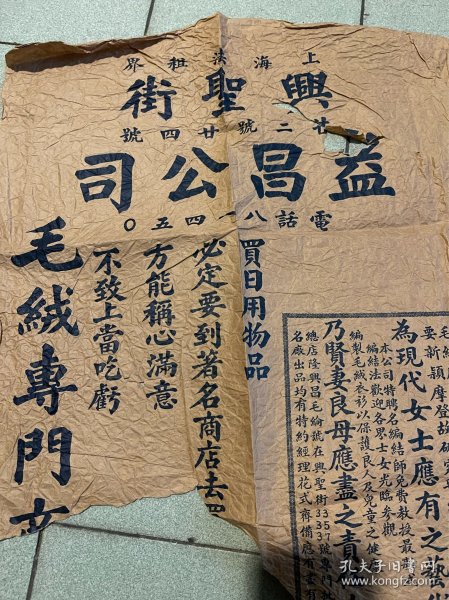 上海法租界
興聖街
廿二號廿四號
益昌公司
電話八一四五〇
買日用物品
必定要到著名商店去買
方能稱心滿意
不致上當吃虧
毛絨專門
要新穎摩登
為現代女士應有之藝術
本公司特聘名編結師免費教授最
編結法歡迎各界士女光臨參觀
編製毛絨衣衫以保護良人及兒童之健
乃賢妻良母應盡之責
總店隆興昌毛綸號在興聖街3357號專門批
名廠出品均有特約經理花式齊備應有盡有
孔夫子旧书网
kongfz.com